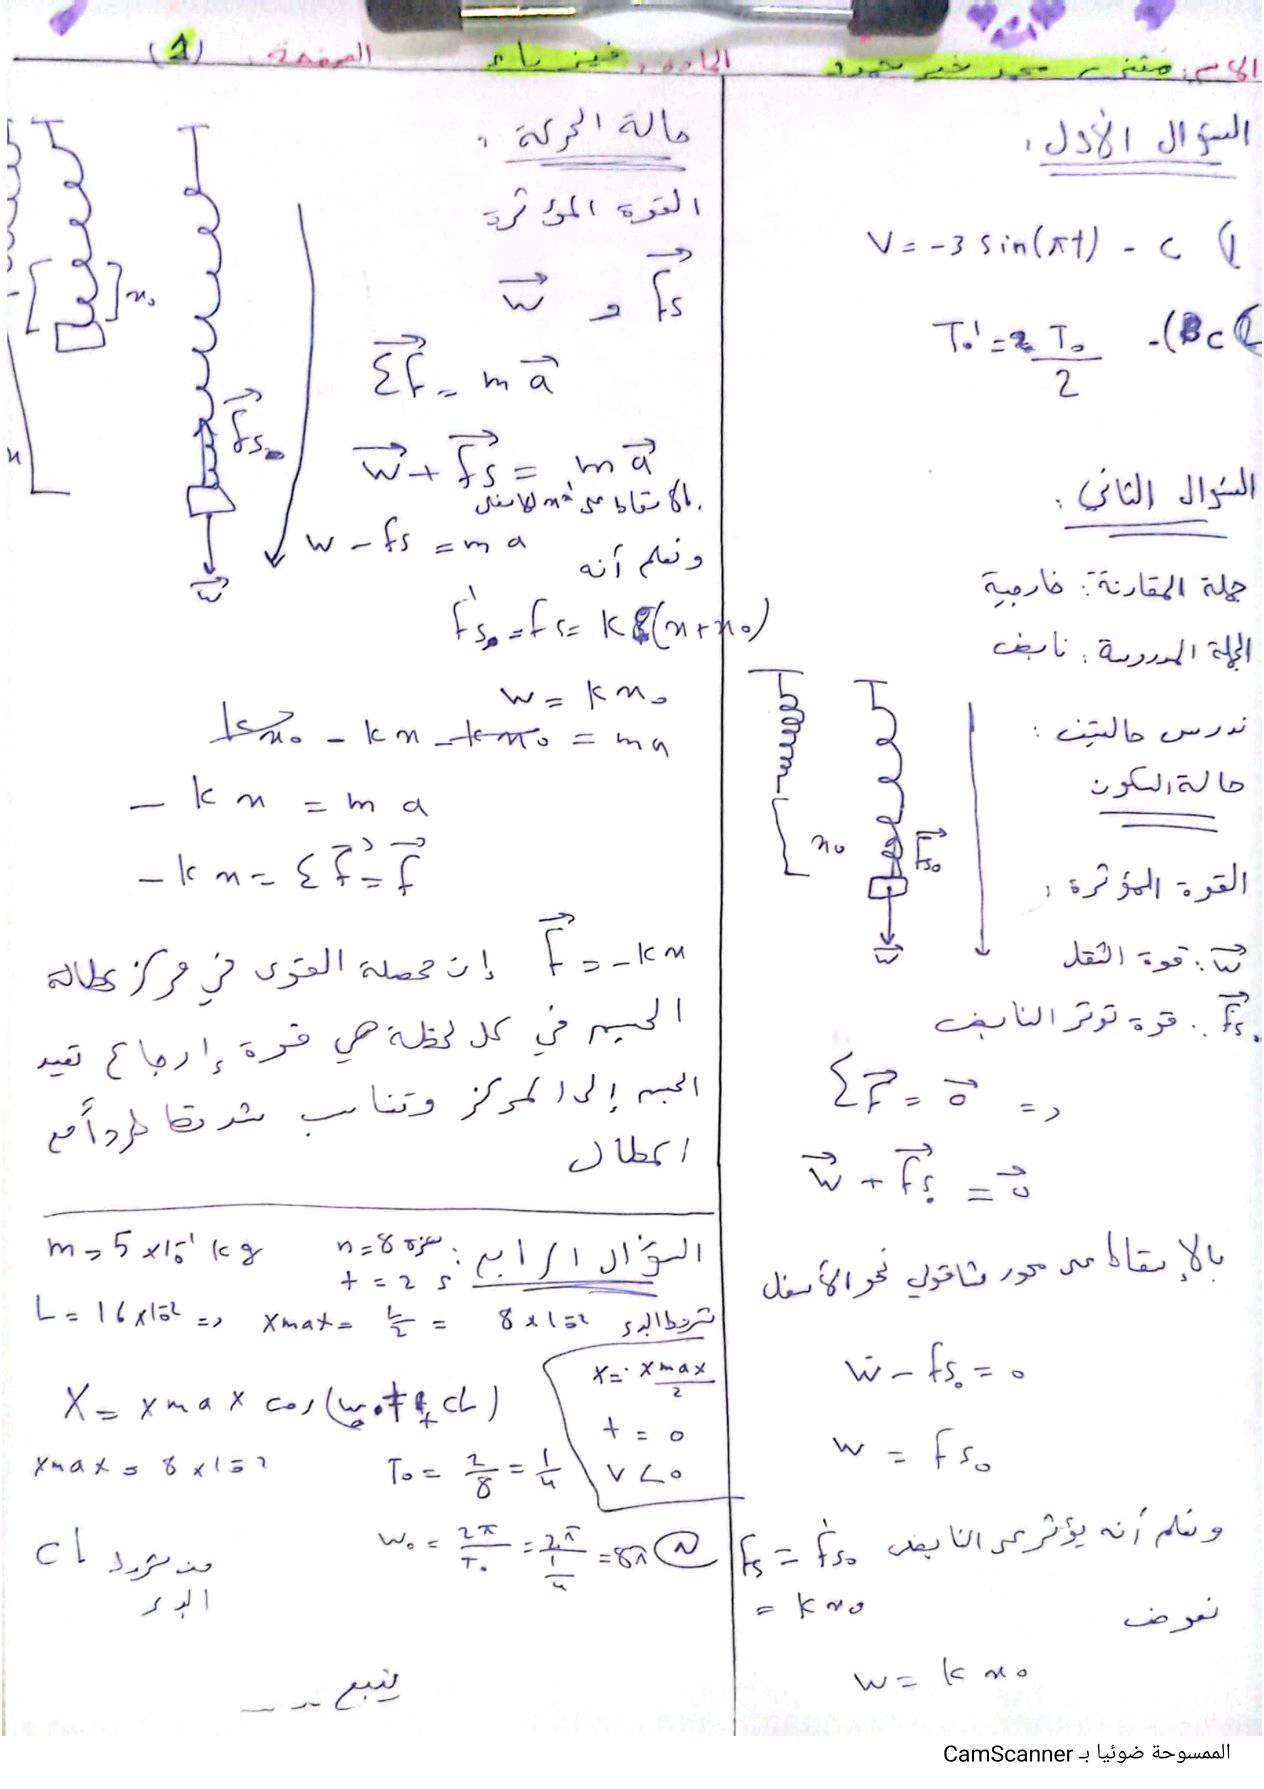 الاسم: محمد خير المادة: فيزياء الصفحة: (1)
السؤال الأول:
1) c - v = -3 sin(πt)
2) c - T₀' = T₀/2
السؤال الثاني:
جملة المقارنة: خارجية
الجملة المدروسة: نابض
ندرس حالتين:
حالة السكون
القوة المؤثرة:
x₀
Fs₀
w
w: قوة الثقل
fs₀: قوة توتر النابض
=> ΣF = 0
w + Fs₀ = 0
بالإسقاط على محور شاقولي نحو الأسفل
w - fs₀ = 0
w = fs₀
ونعلم أنه يؤثر على النابض fs = f's₀
= k x₀
نعوض
w = k x₀
حالة الحركة:
القوة المؤثرة
w و fs
x₀
x
fs
w
Σf = m a
w + fs = m a
بالاسقاط على للاسفل
w - fs = m a
ونعلم أنه
f's = fs = k (x + x₀)
w = k x₀
kx₀ - kx - kx₀ = ma
- k x = m a
- k x = Σf = f
f = - k x إن محصلة القوى في مركز عطالة
الجسم في كل لحظة هي قوة إرجاع تعيد
الجسم إلى المركز وتتناسب شدتها طرداً مع
المطال
السؤال الرابع: n = 8 هزة m = 5 × 10⁻¹ kg
t = 2 s
L = 16 × 10⁻² => xmax = L/2 = 8 × 10⁻² شروط البدء
x = xmax/2
t = 0
v < 0
X = xmax cos(ω₀t + φ)
xmax = 8 × 10⁻² T₀ = 2/8 = 1/4
ω₀ = 2π/T₀ = 2π/(1/4) = 8π
من شروط
البدء
يتبع ---
الممسوحة ضوئيا بـ CamScanner